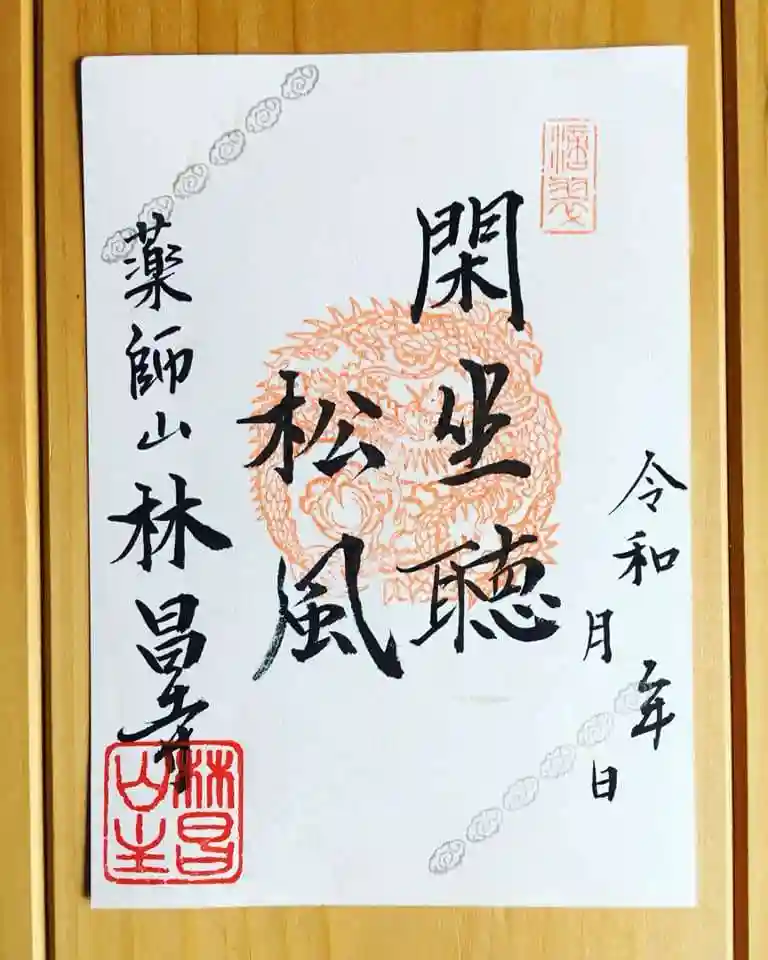 閑坐聴
松風
令和 年
月 日
薬師山林昌寺
林昌
山主